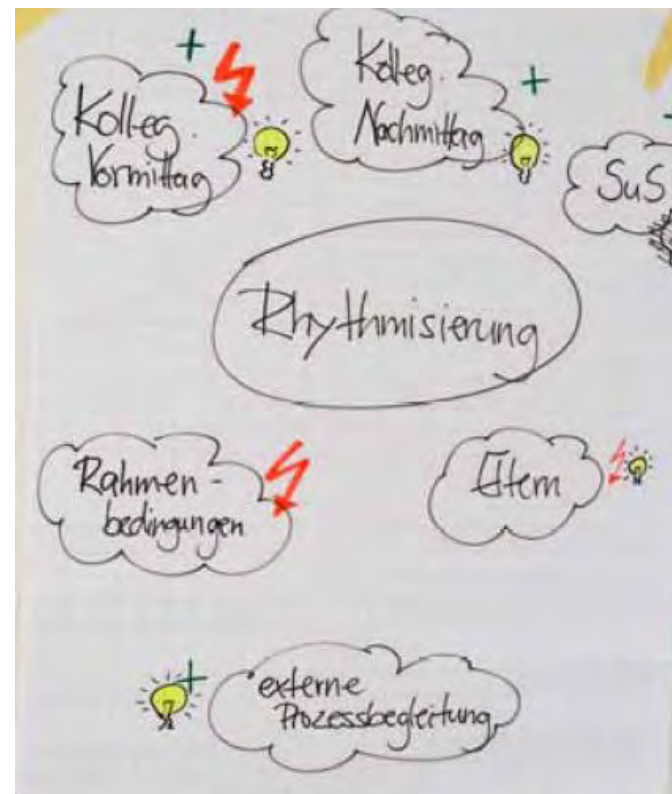 Kolleg.
Vormittag
Kolleg.
Nachmittag
SuS
Rhythmisierung
Rahmen-
bedingungen
Eltern
externe
Prozessbegleitung